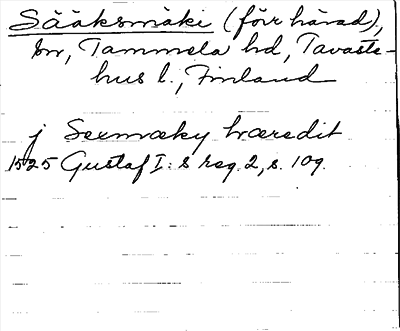 Sääksmäki (förr härad),
sn, Tammela hd, Tavaste-
hus l., Finland
j Sexmæky hæredit
1525 Gustaf I:s reg. 2, s. 109.